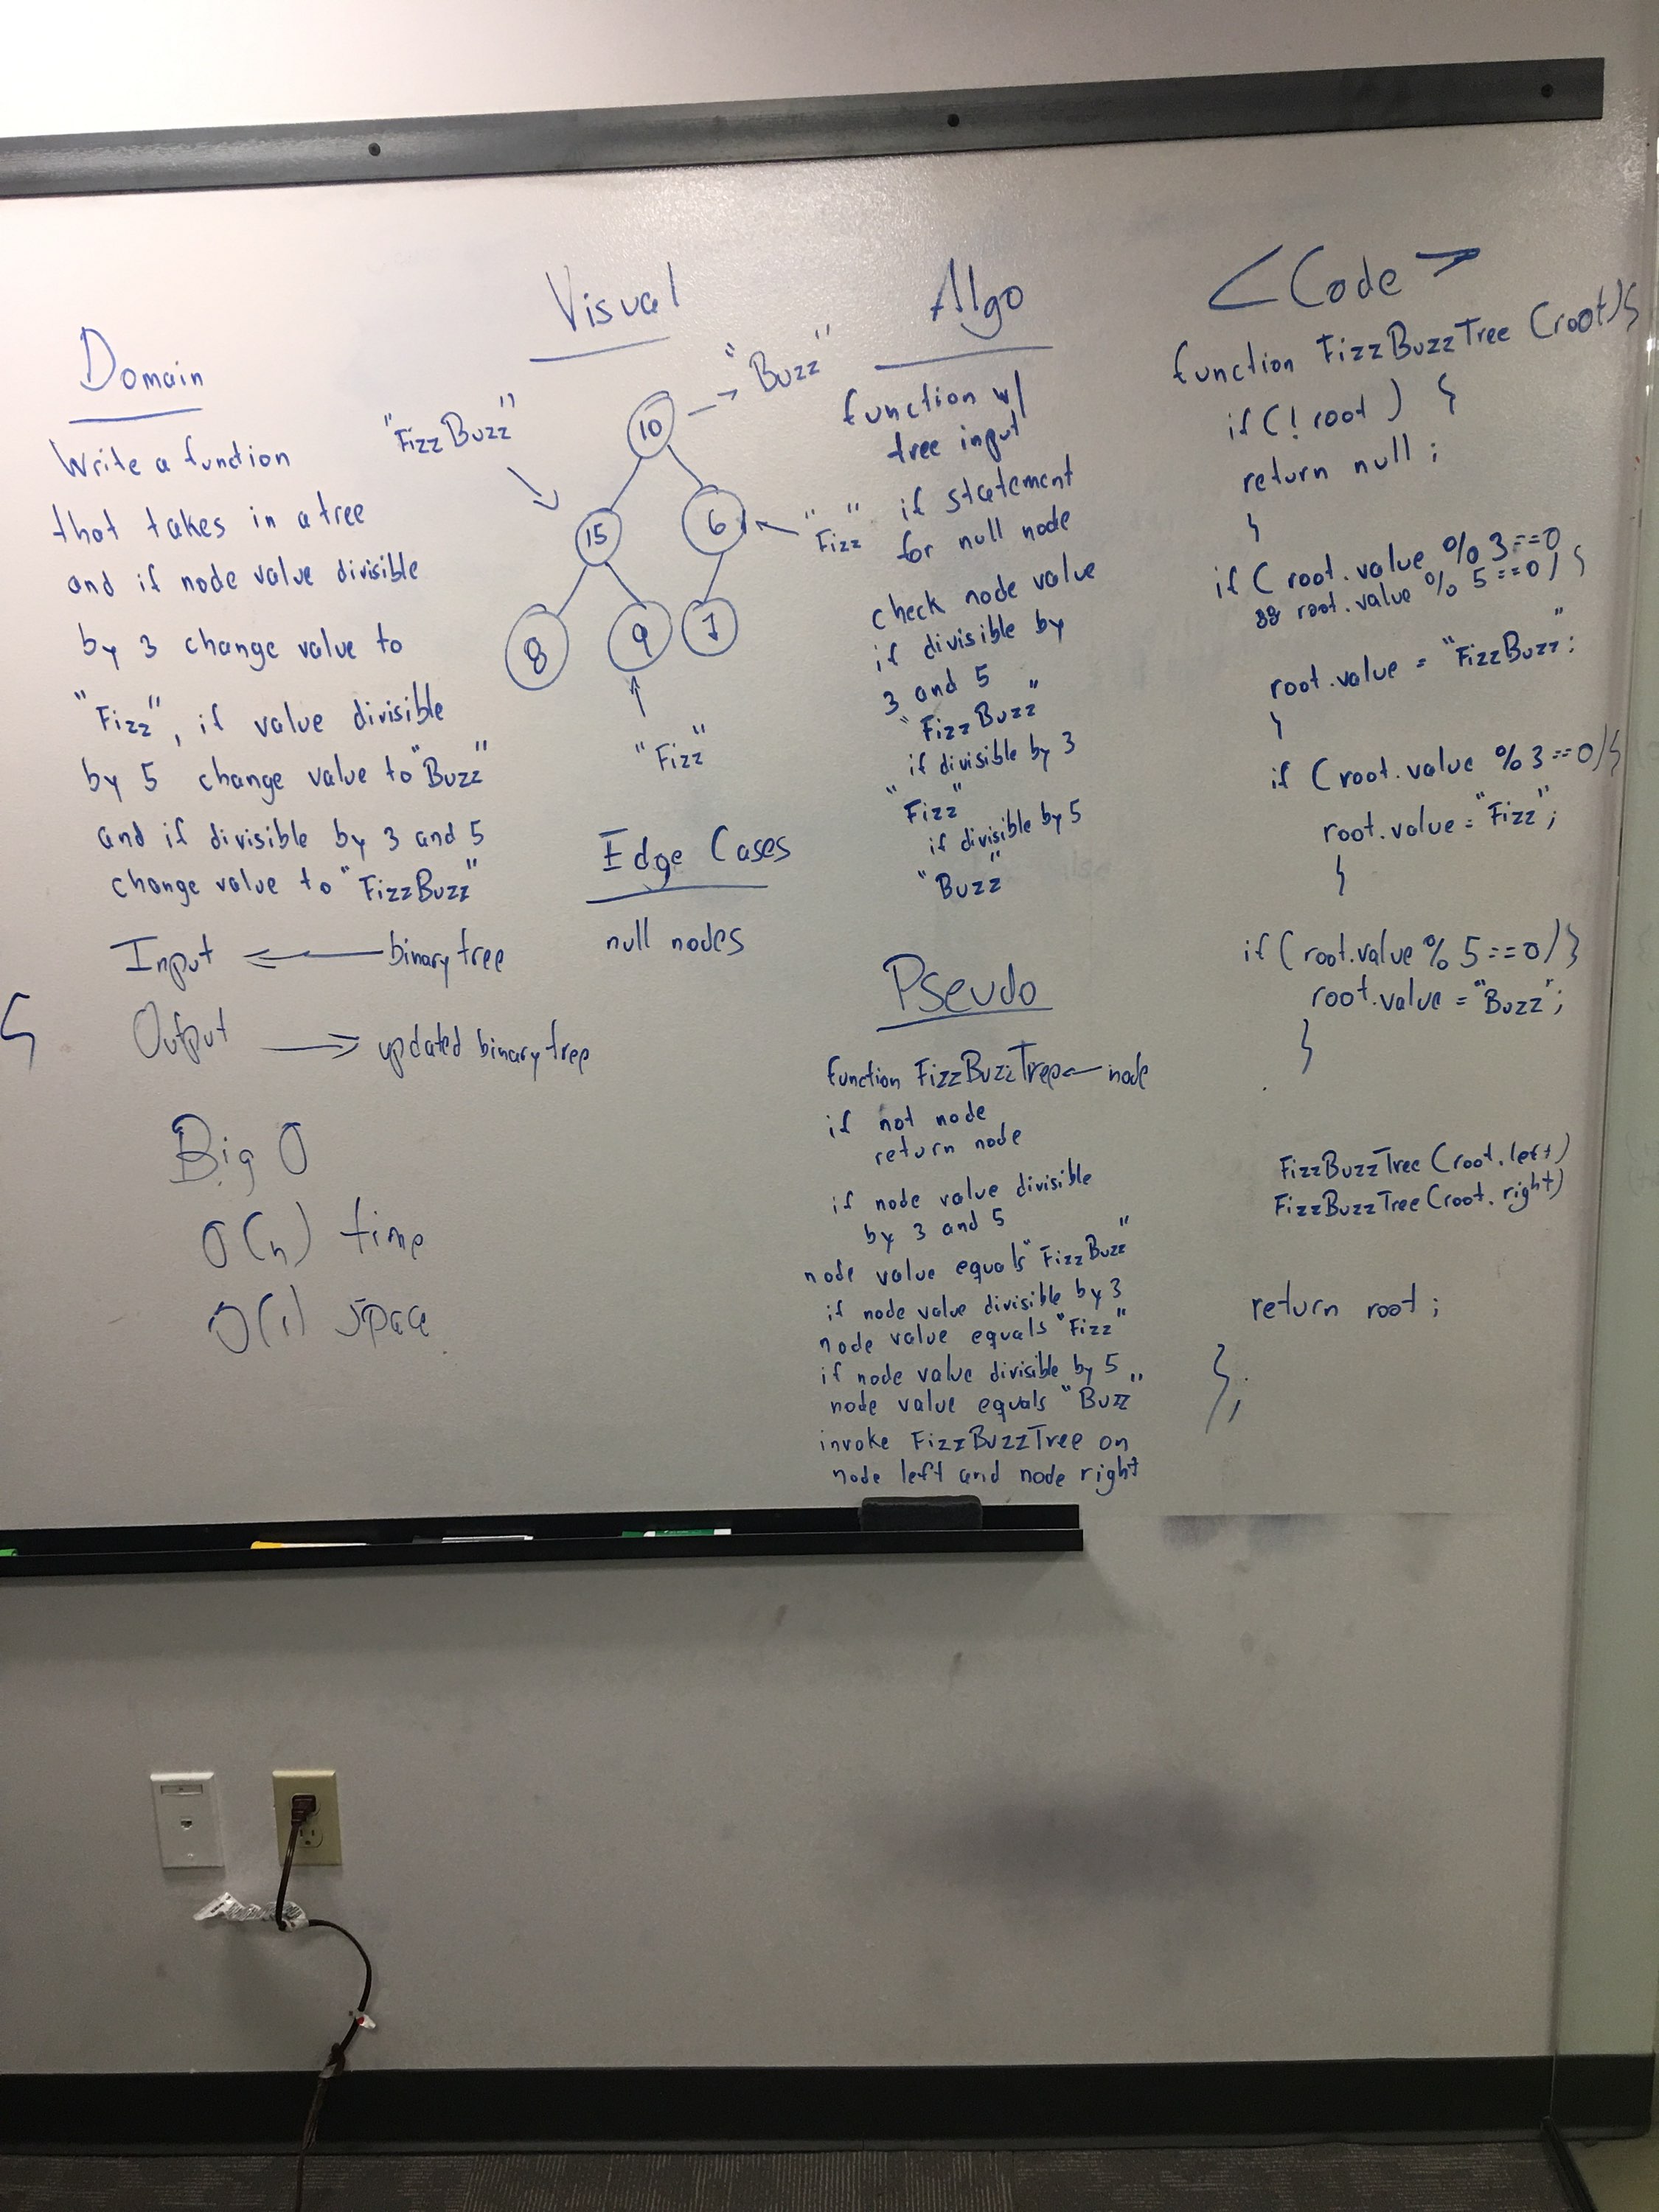 Domain
Write a function
that takes in a tree
and if node value divisible
by 3 change value to
"Fizz", if value divisible
by 5 change value to "Buzz"
and if divisible by 3 and 5
change value to "FizzBuzz"
Input ← binary tree
Output → updated binary tree
Big O
O(n) time
O(1) space
Visual
"FizzBuzz"
"Buzz"
10
15
6
"Fizz"
8
9
1
"Fizz"
Edge Cases
null nodes
Algo
function w/
tree input
if statement
for null node
check node value
if divisible by
3 and 5
"FizzBuzz"
if divisible by 3
"Fizz"
if divisible by 5
"Buzz"
Pseudo
function FizzBuzzTree ← node
if not node
return node
if node value divisible
by 3 and 5
node value equals "FizzBuzz"
if node value divisible by 3
node value equals "Fizz"
if node value divisible by 5
node value equals "Buzz"
invoke FizzBuzzTree on
node left and node right
<Code>
function FizzBuzzTree (root){
if (! root) {
return null;
}
if ( root.value % 3==0
&& root.value % 5==0) {
root.value = "FizzBuzz";
}
if (root.value % 3==0){
root.value = "Fizz";
}
if (root.value % 5==0){
root.value = "Buzz";
}
FizzBuzzTree (root.left)
FizzBuzzTree (root.right)
return root;
};